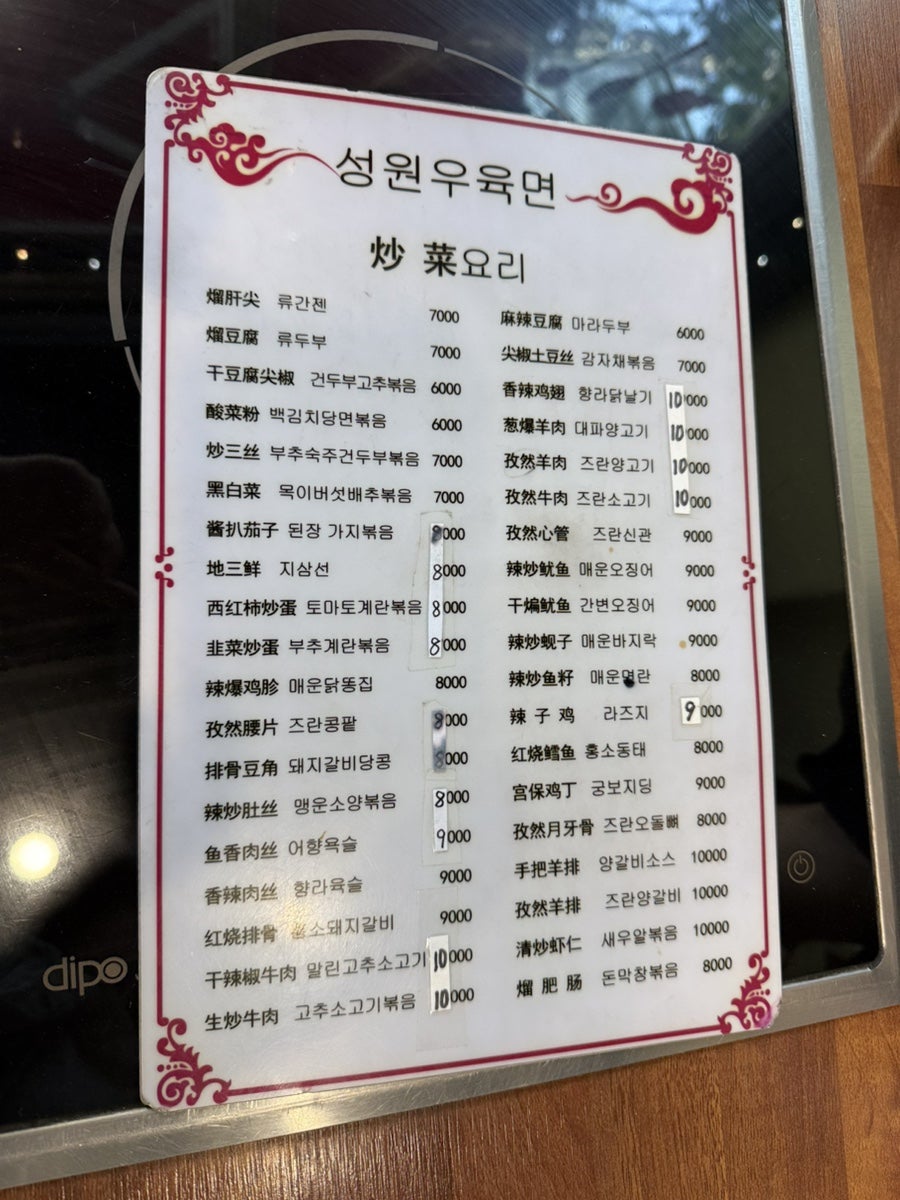 성원우육면
炒 菜요리
熘肝尖 류간젠 7000
熘豆腐 류두부 7000
干豆腐尖椒 건두부고추볶음 6000
酸菜粉 백김치당면볶음 6000
炒三丝 부추숙주건두부볶음 7000
黑白菜 목이버섯배추볶음 7000
酱扒茄子 된장 가지볶음 8000
地三鲜 지삼선 8000
西红柿炒蛋 토마토계란볶음 8000
韭菜炒蛋 부추계란볶음 8000
辣爆鸡胗 매운닭똥집 8000
孜然腰片 즈란콩팥 8000
排骨豆角 돼지갈비당콩 8000
辣炒肚丝 맹운소양볶음 8000
鱼香肉丝 어향육슬 9000
香辣肉丝 향라육슬 9000
红烧排骨 소돼지갈비 9000
干辣椒牛肉 말린고추소고기 10000
生炒牛肉 고추소고기볶음 10000
麻辣豆腐 마라두부 6000
尖椒土豆丝 감자채볶음 7000
香辣鸡翅 향라닭날기 10000
葱爆羊肉 대파양고기 10000
孜然羊肉 즈란양고기 10000
孜然牛肉 즈란소고기 10000
孜然心管 즈란신관 9000
辣炒鱿鱼 매운오징어 9000
干煸鱿鱼 간변오징어 9000
辣炒蚬子 매운바지락 9000
辣炒鱼籽 매운명란 8000
辣 子 鸡 라즈지 9000
红烧鳕鱼 홍소동태 8000
宫保鸡丁 궁보지딩 9000
孜然月牙骨 즈란오돌뼈 8000
手把羊排 양갈비소스 10000
孜然羊排 즈란양갈비 10000
清炒虾仁 새우알볶음 10000
熘 肥 肠 돈막창볶음 8000
dipo